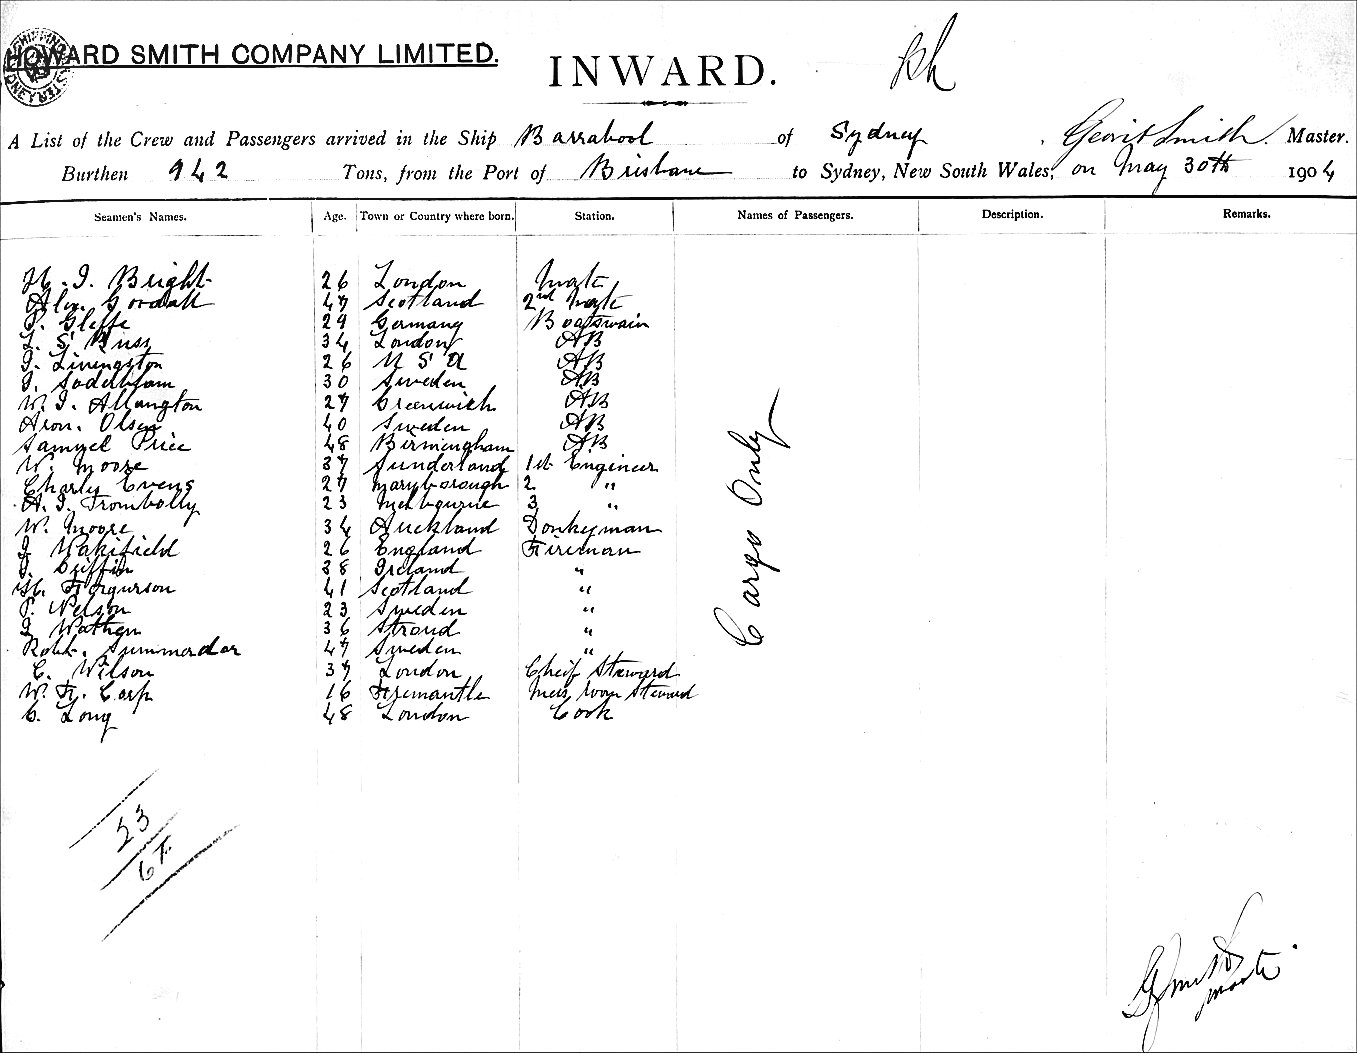 HOWARD SMITH COMPANY LIMITED.
INWARD.
A List of the Crew and Passengers arrived in the Ship Barrabool of Sydney, Smith. Master.
Burthen 942 Tons, from the Port of Brisbane to Sydney, New South Wales, on May 30th 1904
Seamen's Names. Age. Town or Country where born. Station. Names of Passengers. Description. Remarks.
H. J. Bright 26 London Mate
47 Scotland 2nd Mate
29 Germany Boatswain
34 London AB
26 U S A AB
30 Sweden AB
W. J. Allangton 27 Greenwich AB
Aron. Olsen 40 Sweden AB
Samuel Price 48 Birmingham AB
W. Moore 37 Sunderland 1st Engineer
Charly Evens 27 Maryborough 2 "
A. J. Trombolly 23 Melbourne 3 "
W. Moore 34 Auckland Donkeyman
J Wakifield 26 England Fireman
J. Griffin 38 Ireland "
H. Fergurson 41 Scotland "
P. Nelson 23 Sweden "
J Wathen 36 Stroud "
Robt. Summerdar 47 Sweden "
C. Wilson 37 London Cheif Steward
W. H. Carp 16 Fremantle Mess room Steward
C. Long 48 London Cook
Cargo Only
23